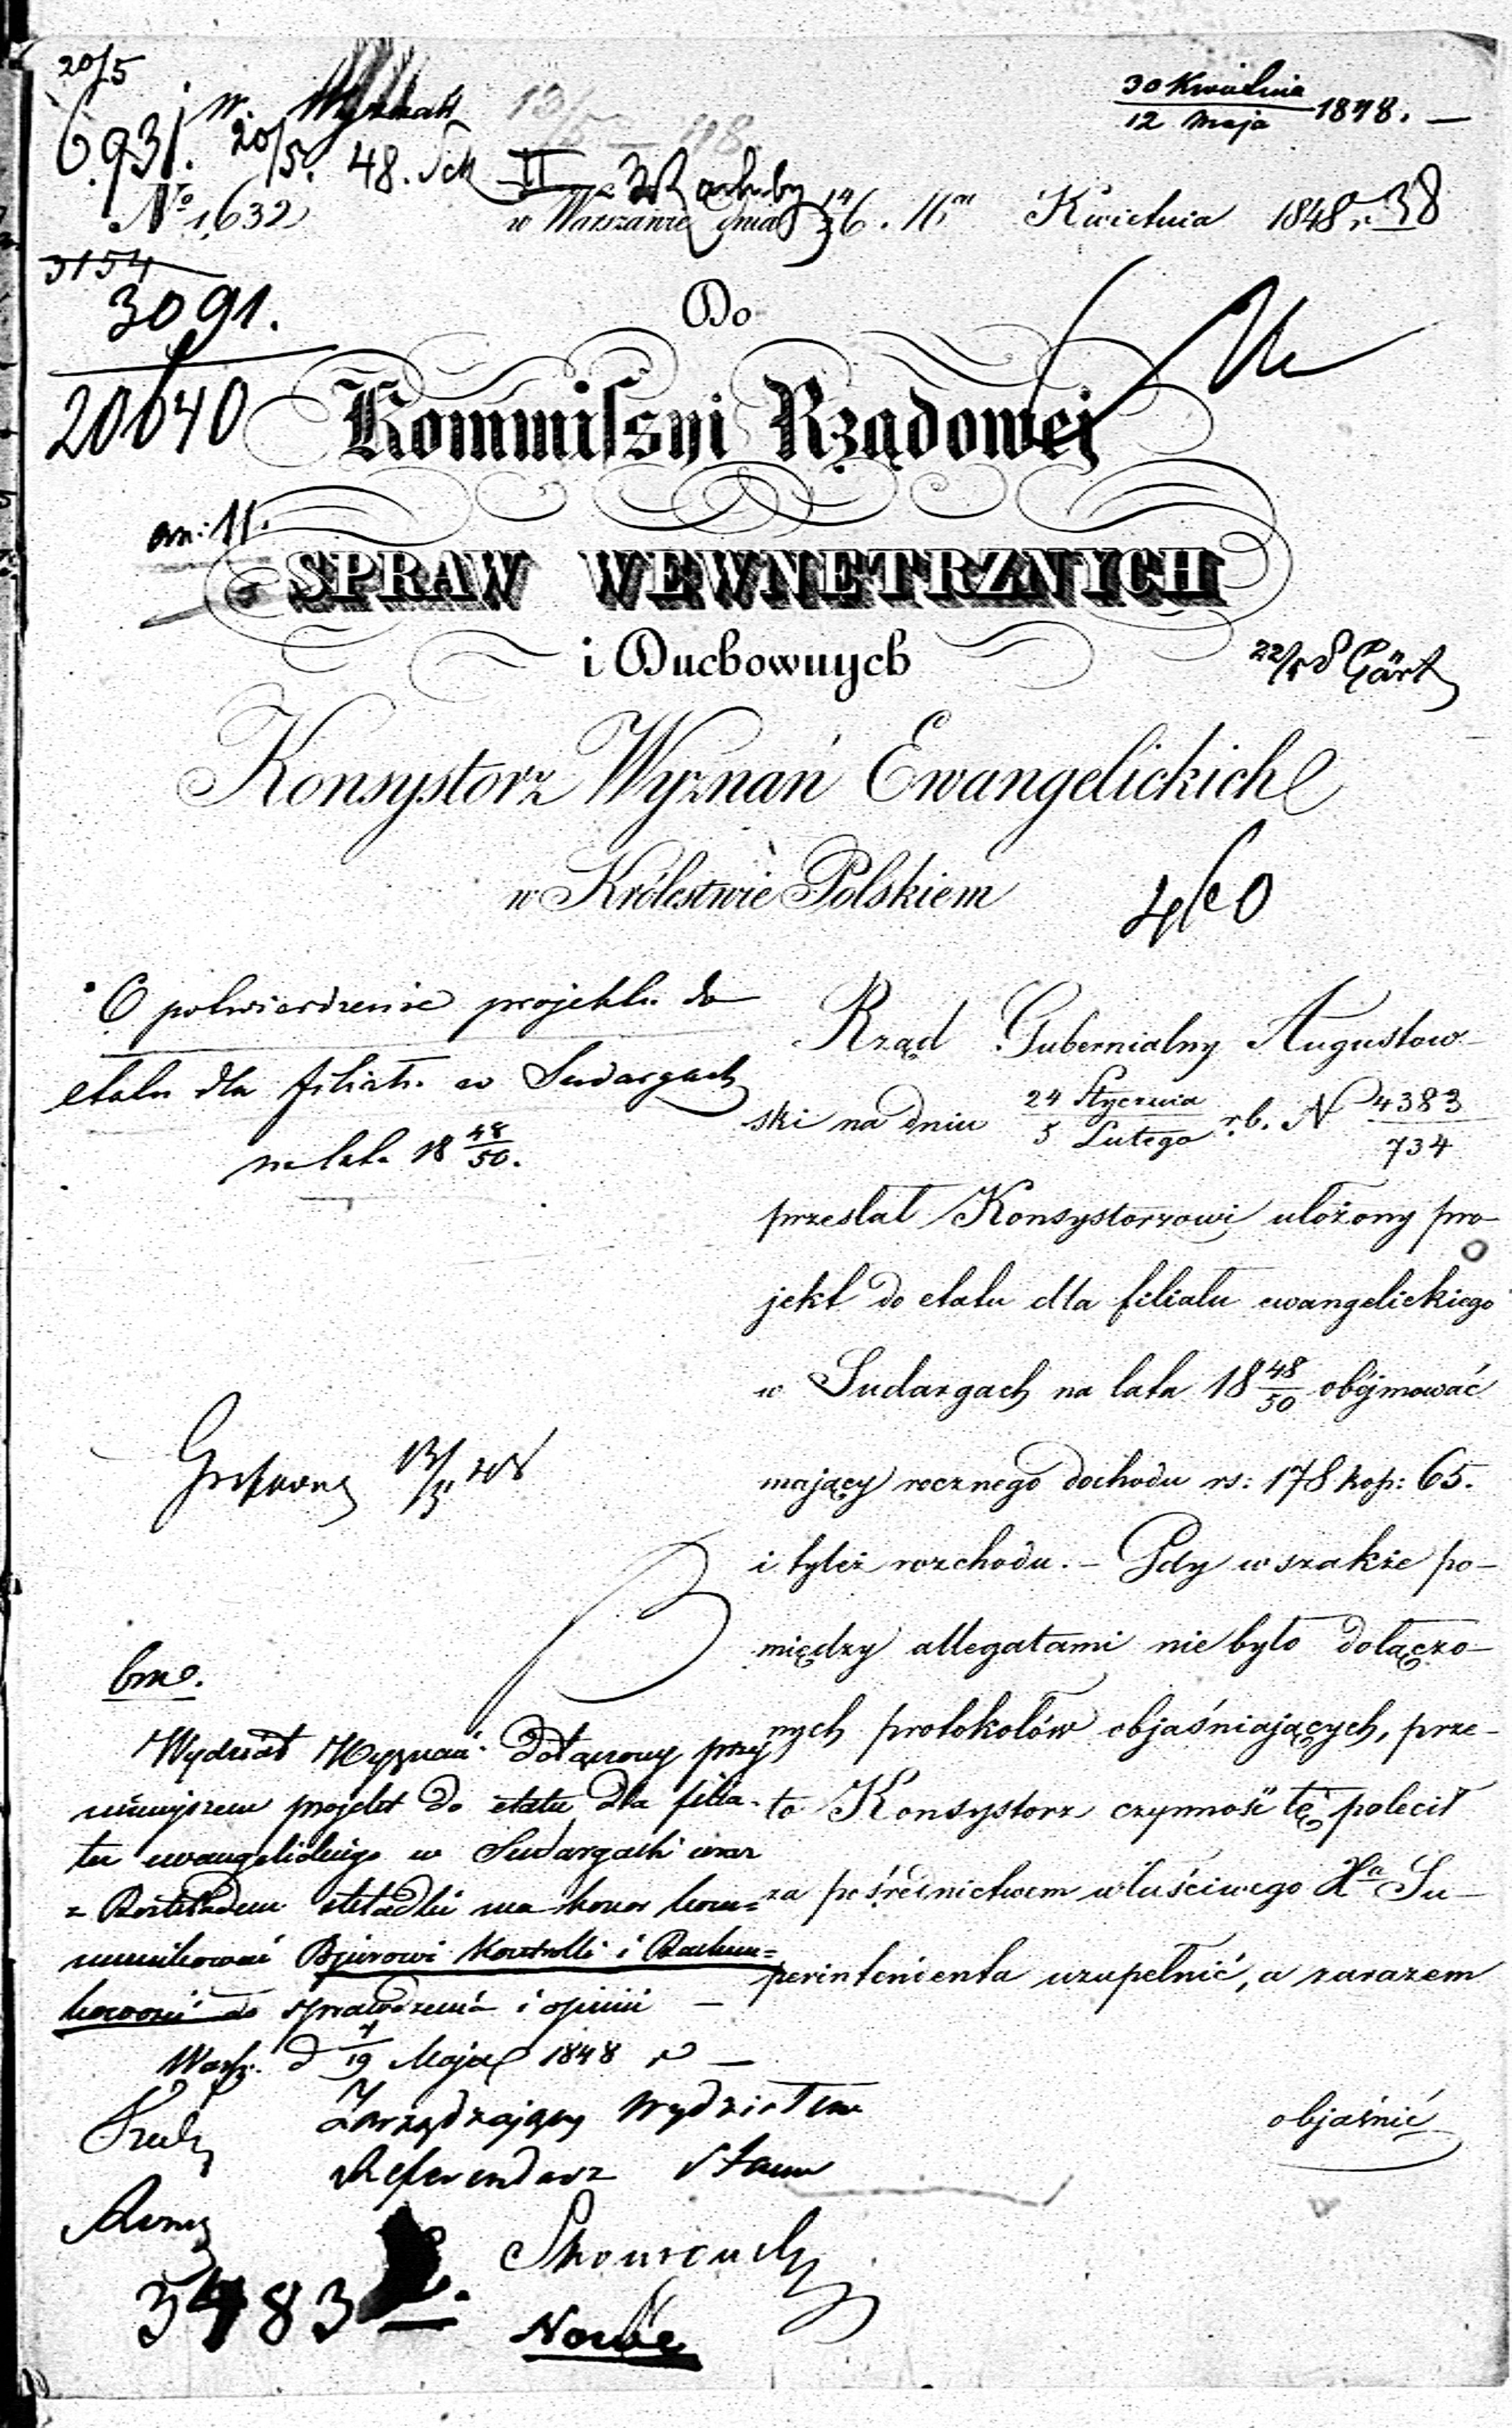 20/5
6.931. W. Wyznań
20/5. 48.
30 Kwietnia
12 Maja 1848. —
No 1632
w Warszawie dnia 16. Kwietnia 1848 r. 38
3154
3091.
20640
Do
Kommissyi Rządowej
an: 11.
SPRAW WEWNETRZNYCH
i Duchownych
22/5
Konsystorz Wyznań Ewangelickich
w Królestwie Polskiem
O potwierdzenie projektu do
etatu dla filiału w Sudargach
na lata 18 48/50.
Rząd Gubernialny Augustow-
ski na dniu 24 Stycznia / 5 Lutego r.b. N 4383/734
przesłał Konsystorzowi ułożony pro-
jekt do etatu dla filiału ewangelickiego
w Sudargach na lata 18 48/50 objmować
mający rocznego dochodu rs: 178 kop: 65.
i tyleż rozchodu. – Gdy wszakże po-
między allegatami nie było dołączo-
nych protokołów objaśniających, prze-
to Konsystorz czynność tę polecił
za pośrednictwem właściwego Xa Su-
perintendenta uzupełnić, a zarazem
objaśnić
bmo.
Wydział Wyznań dołączony przy
niniejszem projekt do etatu dla filia-
łu ewangelickiego w Sudargach wraz
z Rozkładem składki ma honor kom-
munikować Bjurowi Kontrolli i Rachun-
kowości do sprawdzenia i opinii —
Warsz. d 7/19 Maja 1848 r —
Zarządzający Wydziałem
Referendarz Stanu
3483
Nowe